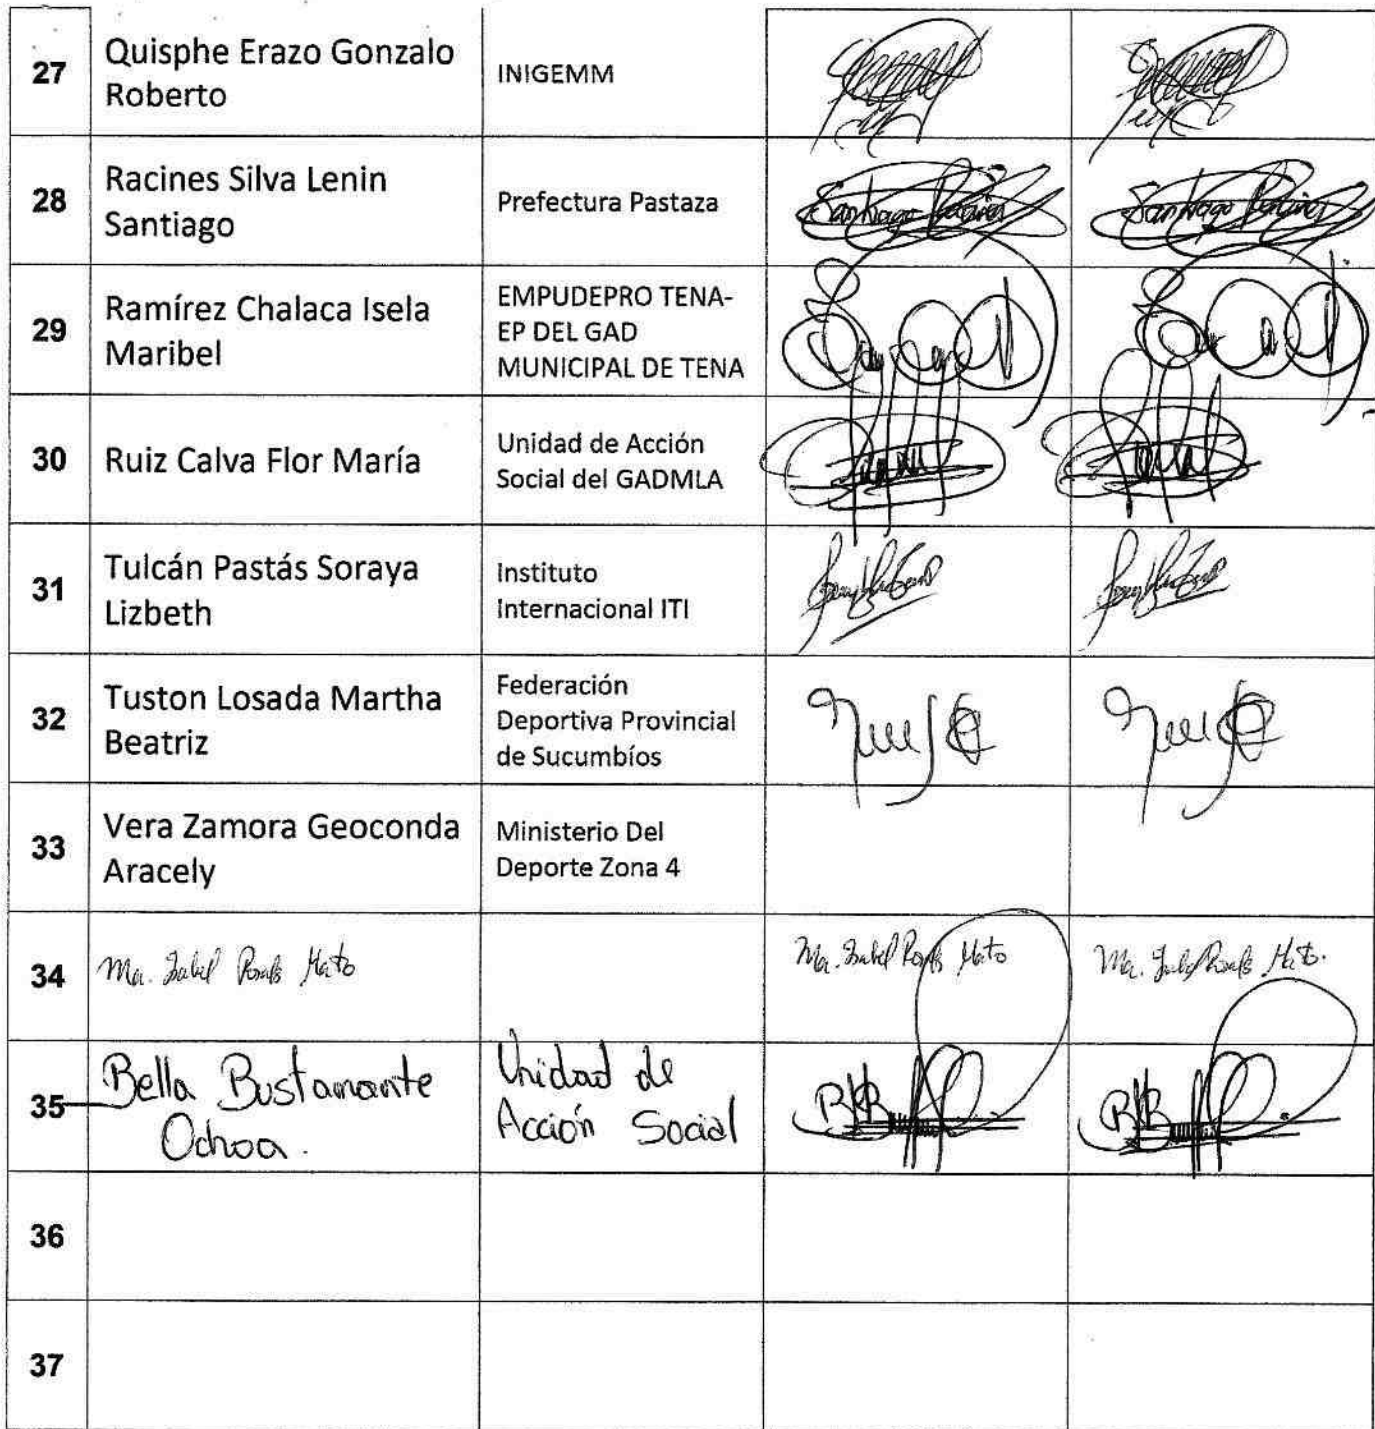 27
Quisphe Erazo Gonzalo
Roberto
INIGEMM
28
Racines Silva Lenin
Santiago
Prefectura Pastaza
Santiago Racines
Santiago Racines
29
Ramírez Chalaca Isela
Maribel
EMPUDEPRO TENA-
EP DEL GAD
MUNICIPAL DE TENA
30
Ruiz Calva Flor María
Unidad de Acción
Social del GADMLA
31
Tulcán Pastás Soraya
Lizbeth
Instituto
Internacional ITI
32
Tuston Losada Martha
Beatriz
Federación
Deportiva Provincial
de Sucumbíos
33
Vera Zamora Geoconda
Aracely
Ministerio Del
Deporte Zona 4
34
Ma. Isabel
Ma. Isabel
Ma.
35
Bella Bustamante
Ochoa.
Unidad de
Acción Social
36
37